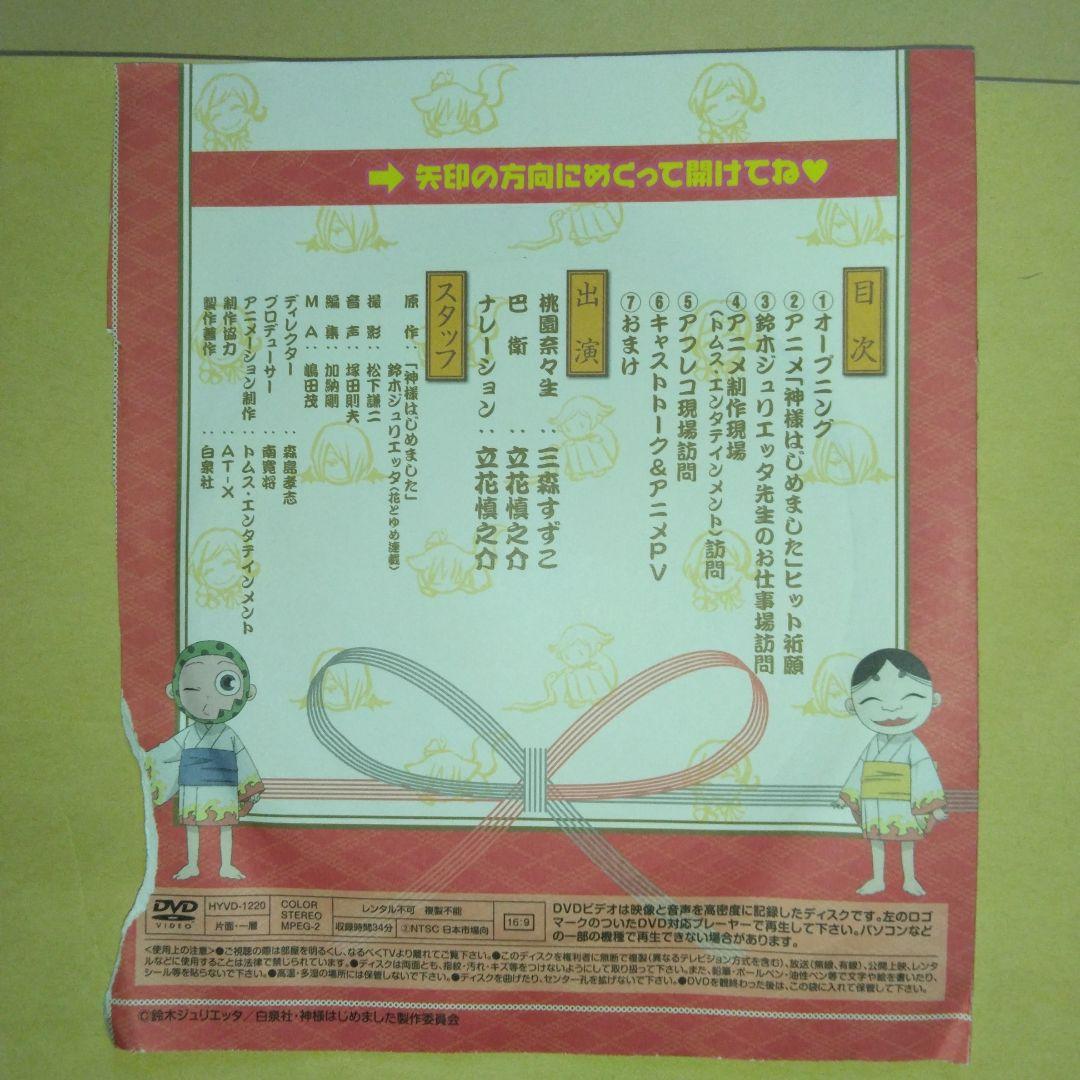 ➡ 矢印の方向にめくって開けてね♥
目次
①オープニング
②アニメ「神様はじめました」ヒット祈願
③鈴木ジュリエッタ先生のお仕事場訪問
④アニメ制作現場
(トムス・エンタテインメント)訪問
⑤アフレコ現場訪問
⑥キャストトーク&アニメPV
⑦おまけ
出演
桃園奈々生：三森すずこ
巴衛：立花慎之介
ナレーション：立花慎之介
スタッフ
原作：「神様はじめました」
鈴木ジュリエッタ(花とゆめ連載)
撮影：松下謙二
音声：塚田則夫
編集：加納剛
MA：嶋田茂
ディレクター：森島孝志
プロデューサー：南寛将
アニメーション制作：トムス・エンタテインメント
制作協力：AT-X
製作著作：白泉社
DVD VIDEO
HYVD-1220
片面・一層
COLOR
STEREO
MPEG-2
レンタル不可 複製不能
収録時間34分
②NTSC 日本市場向
16:9
DVDビデオは映像と音声を高密度に記録したディスクです。左のロゴ
マークのついたDVD対応プレーヤーで再生して下さい。パソコンなど
の一部の機種で再生できない場合があります。
<使用上の注意>●ご視聴の際は部屋を明るくし、なるべくTVより離れてご覧下さい。●このディスクを権利者に無断で複製(異なるテレビジョン方式を含む)、放送(無線、有線)、公開上映、レンタ
ルなどに使用することは法律で禁じられています。●ディスクは両面とも、指紋・汚れ・キズ等をつけないようにして取り扱って下さい。また、鉛筆・ボールペン・油性ペン等で文字や絵を書いたり、
シール等を貼らないで下さい。●高温・多湿の場所には保管しないで下さい。●ディスクを曲げたり、センター孔を拡げないで下さい。●DVDを観終わった後は、この袋に入れて保管して下さい。
©鈴木ジュリエッタ/白泉社・神様はじめました製作委員会